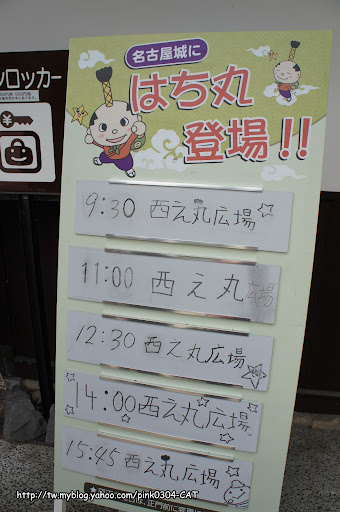 ンロッカー
名古屋城に
はち丸
登場!!
9:30 西え丸広場
11:00 西え丸広場
12:30 西え丸広場
14:00 西え丸広場
15:45 西え丸広場
http://tw.myblog.yahoo.com/pink0304-CAT